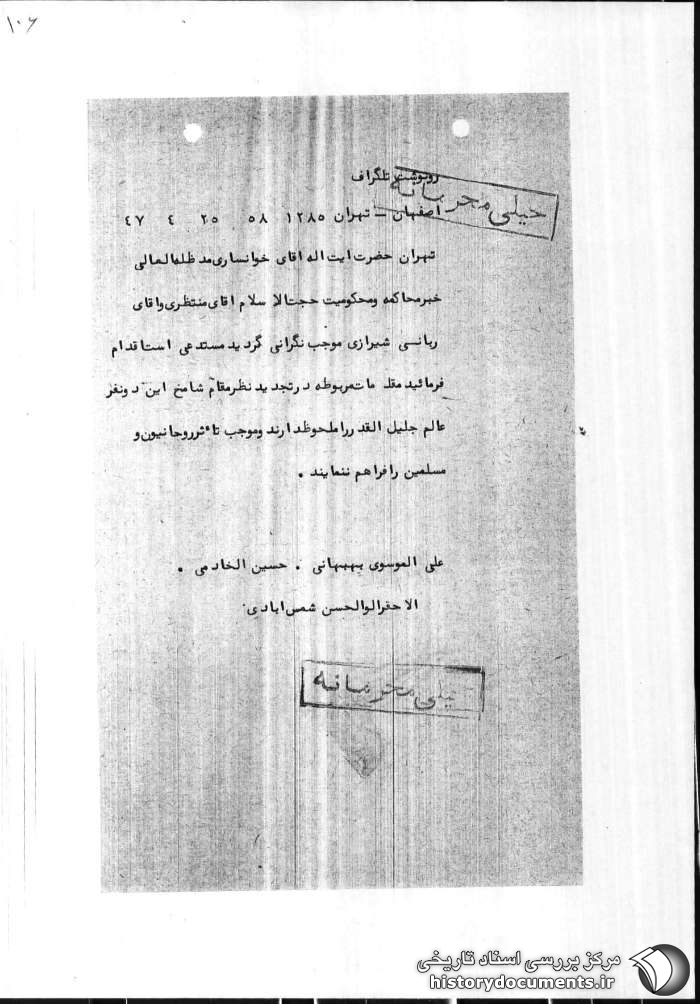 ۱۰۶
رونوشت تلگراف
خیلی محرمانه
اصفهان – تهران ۱۲۸۵ ۵۸ ۲۵ ٤ ٤٧
تهران حضرت ایت اله اقای خوانساری مد ظله العالی
خبر محاکمه و محکومیت حجت الا سلام اقای منتظری و اقای
ربانی شیرازی موجب نگرانی گردید مستدعی است اقدام
فرمائید مقامات مربوطه در تجدید نظر مقام شامخ این دو نفر
عالم جلیل القدر را ملحوظ دارند و موجب تاءثر روحانیون و
مسلمین را فراهم ننمایند .
علی الموسوی بهبهانی . حسین الخادمی .
الا حقر ابوالحسن شمس ابادی
خیلی محرمانه
مرکز بررسی اسناد تاریخی
historydocuments.ir